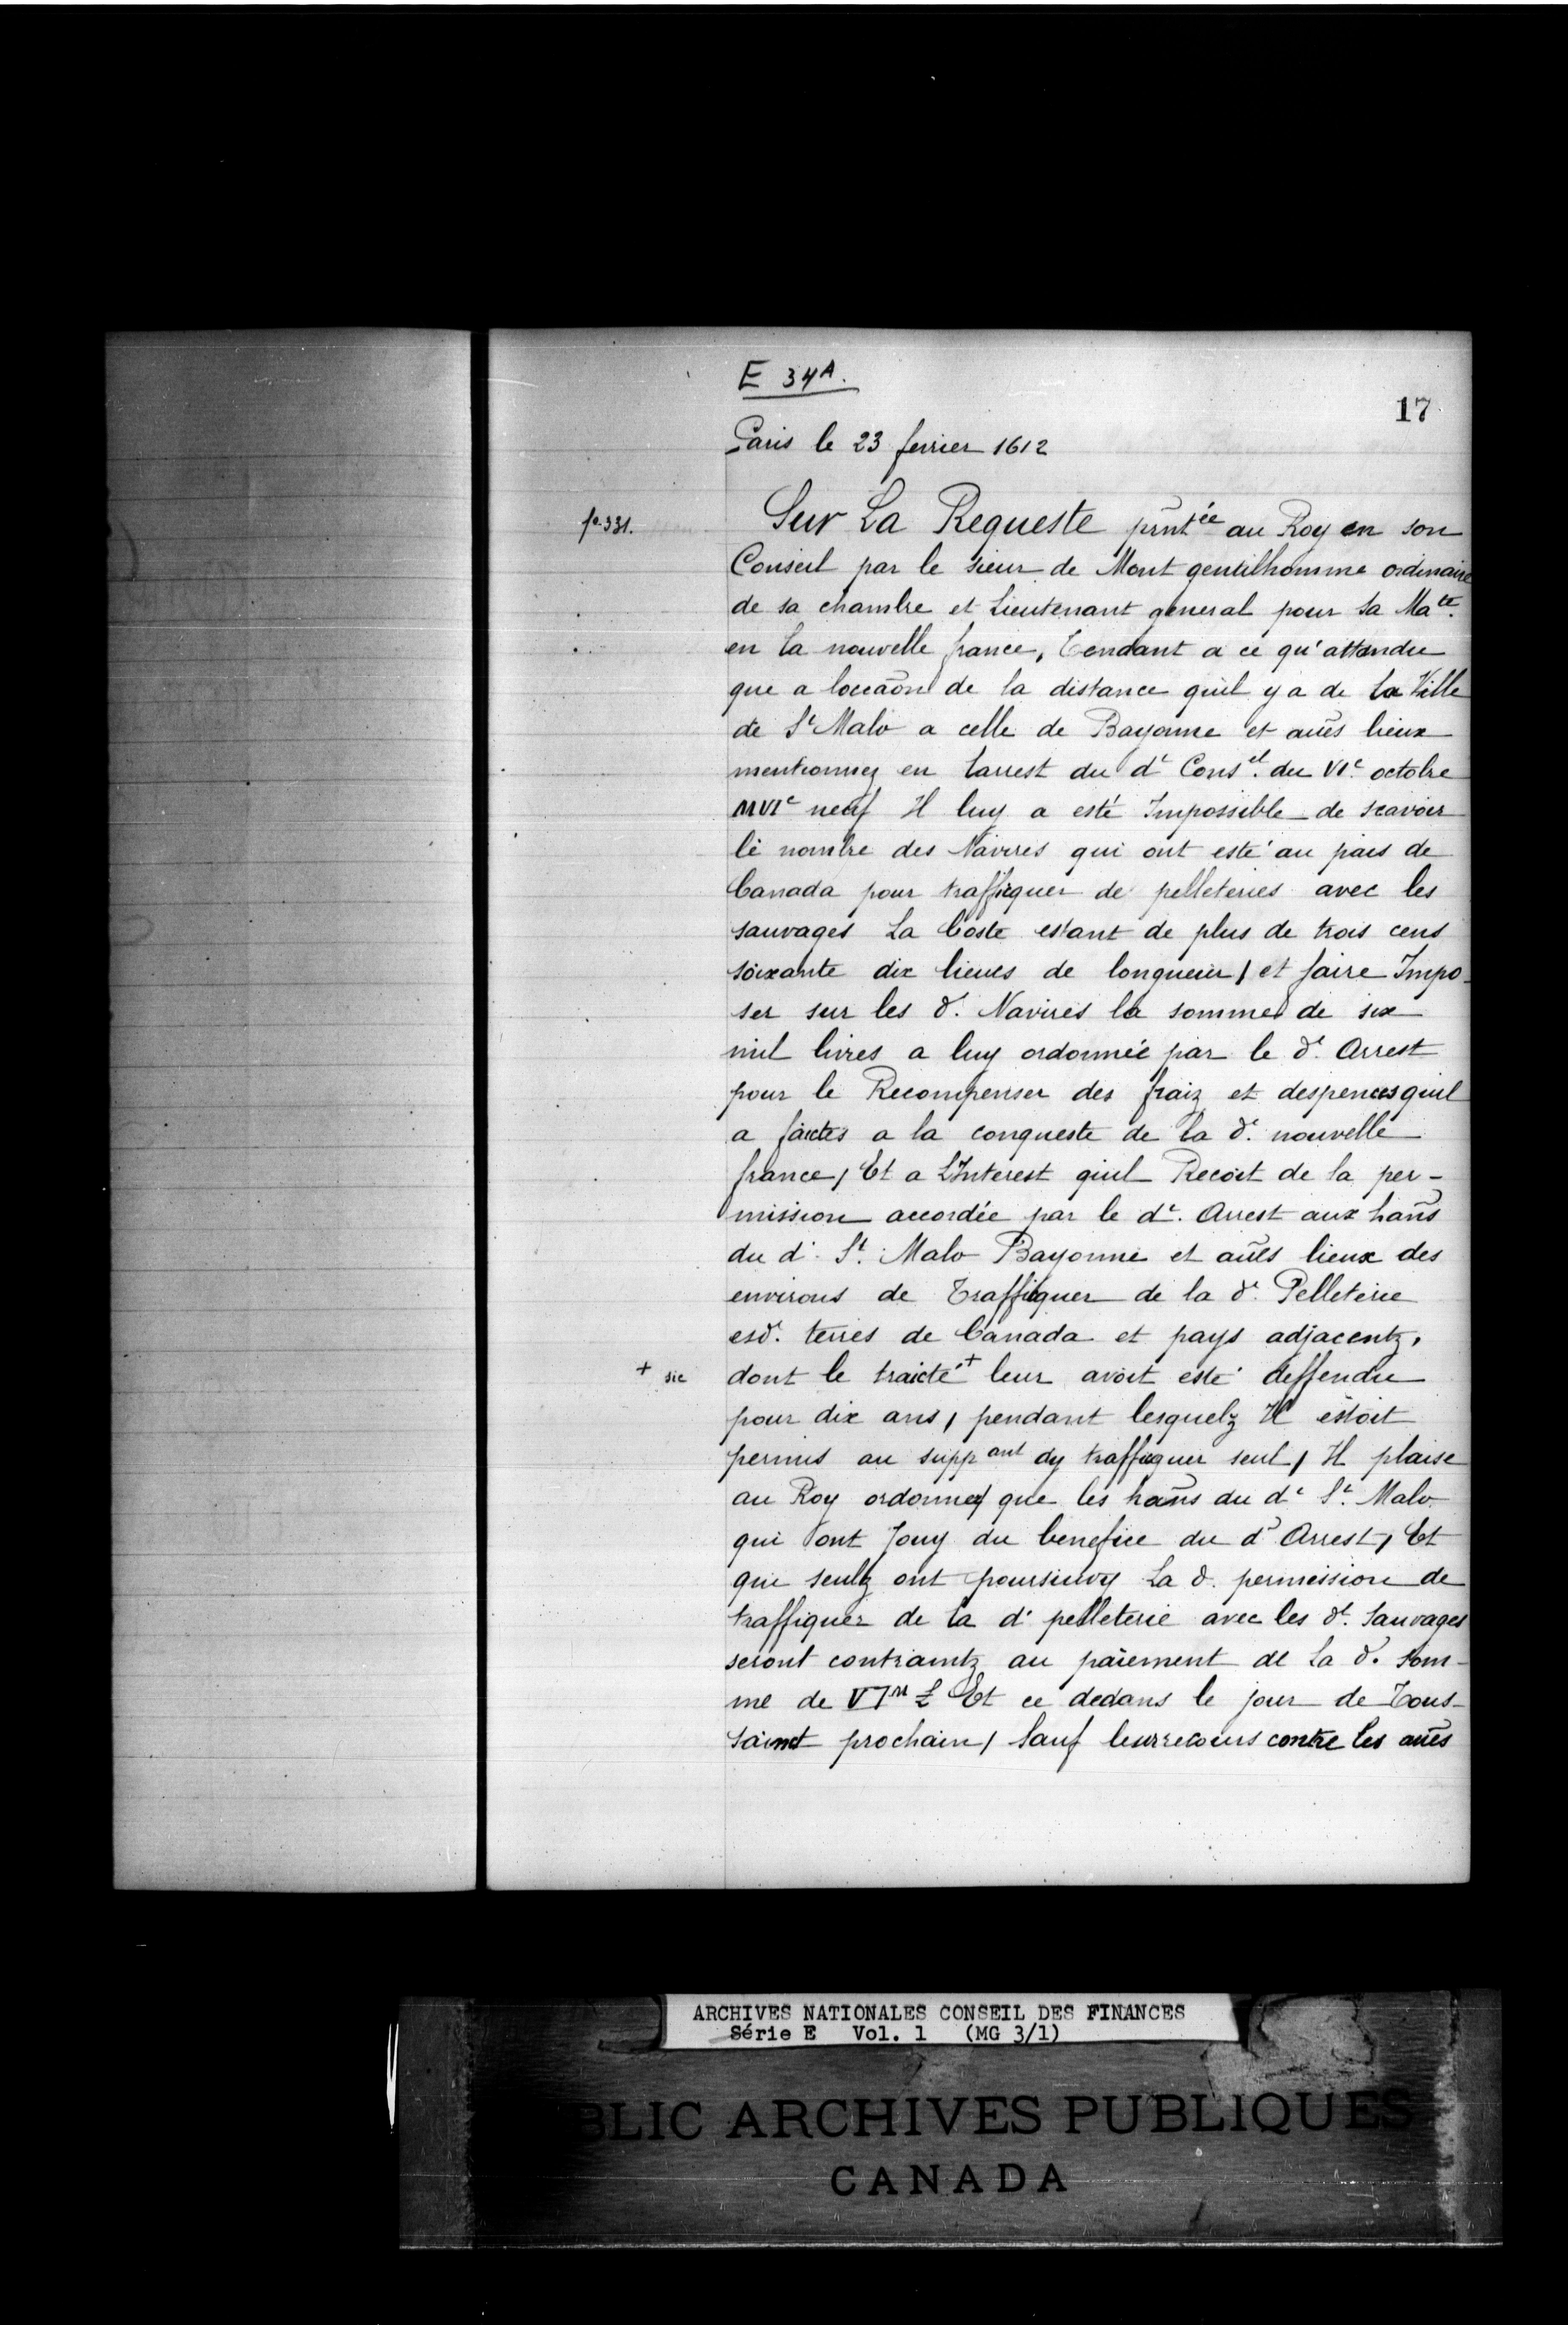 E 34A.
17
Paris le 23 fevrier 1612
fo 331.
Sur La Requeste pñtée au Roy en son
Conseil par le sieur de Mont gentilhomme ordinaire
de sa chambre et Lieutenant general pour sa Mate.
en la nouvelle france, Tendant a ce qu'attendu
que a loccãon de la distance quil y a de la Ville
de St Malo a celle de Bayonne et aũes lieux
mentionnez en larrest du dt Consel. du VIe octobre
MVIc neuf Il luy a esté Impossible de scavoir
le nombre des Navires qui ont esté au pais de
Canada pour traffiquer de pelleteries avec les
sauvages La Coste estant de plus de trois cens
soixante dix lieues de longueur / et faire Impo-
ser sur les d. Navires la somme de six
mil livres a luy ordonnée par le dt. Arrest
pour le Recompenser des fraiz et despences quil
a faictes a la conqueste de la dt. nouvelle
france, Et a L'Interest quil Recoit de la per-
mission accordée par le dt. Arrest aux hañs
du d. St. Malo Bayonne et aũes lieux des
environs de Traffiquer de la dt. Pelleterie
esdt. terres de Canada et pays adjacentz,
+ sic
dont le traicté+ leur avoit esté deffendu
pour dix ans, pendant lesquelz Il estoit
permis au suppant dy traffiquer seul, Il plaise
au Roy ordonner que les hañs du dt St. Malo
qui ont Jouy du benefice du dt Arrest, Et
qui seulz ont poursuivy La d. permission de
traffiquer de la d. pelleterie avec les dt. Sauvages
seront contraintz au paiement de la d. som-
me de VIM ₤ Et ce dedans le jour de Tous-
sainct prochain / Sauf leur recours contre les aũes
ARCHIVES NATIONALES CONSEIL DES FINANCES
Série E Vol. 1 (MG 3/1)
BLIC ARCHIVES PUBLIQUES
CANADA